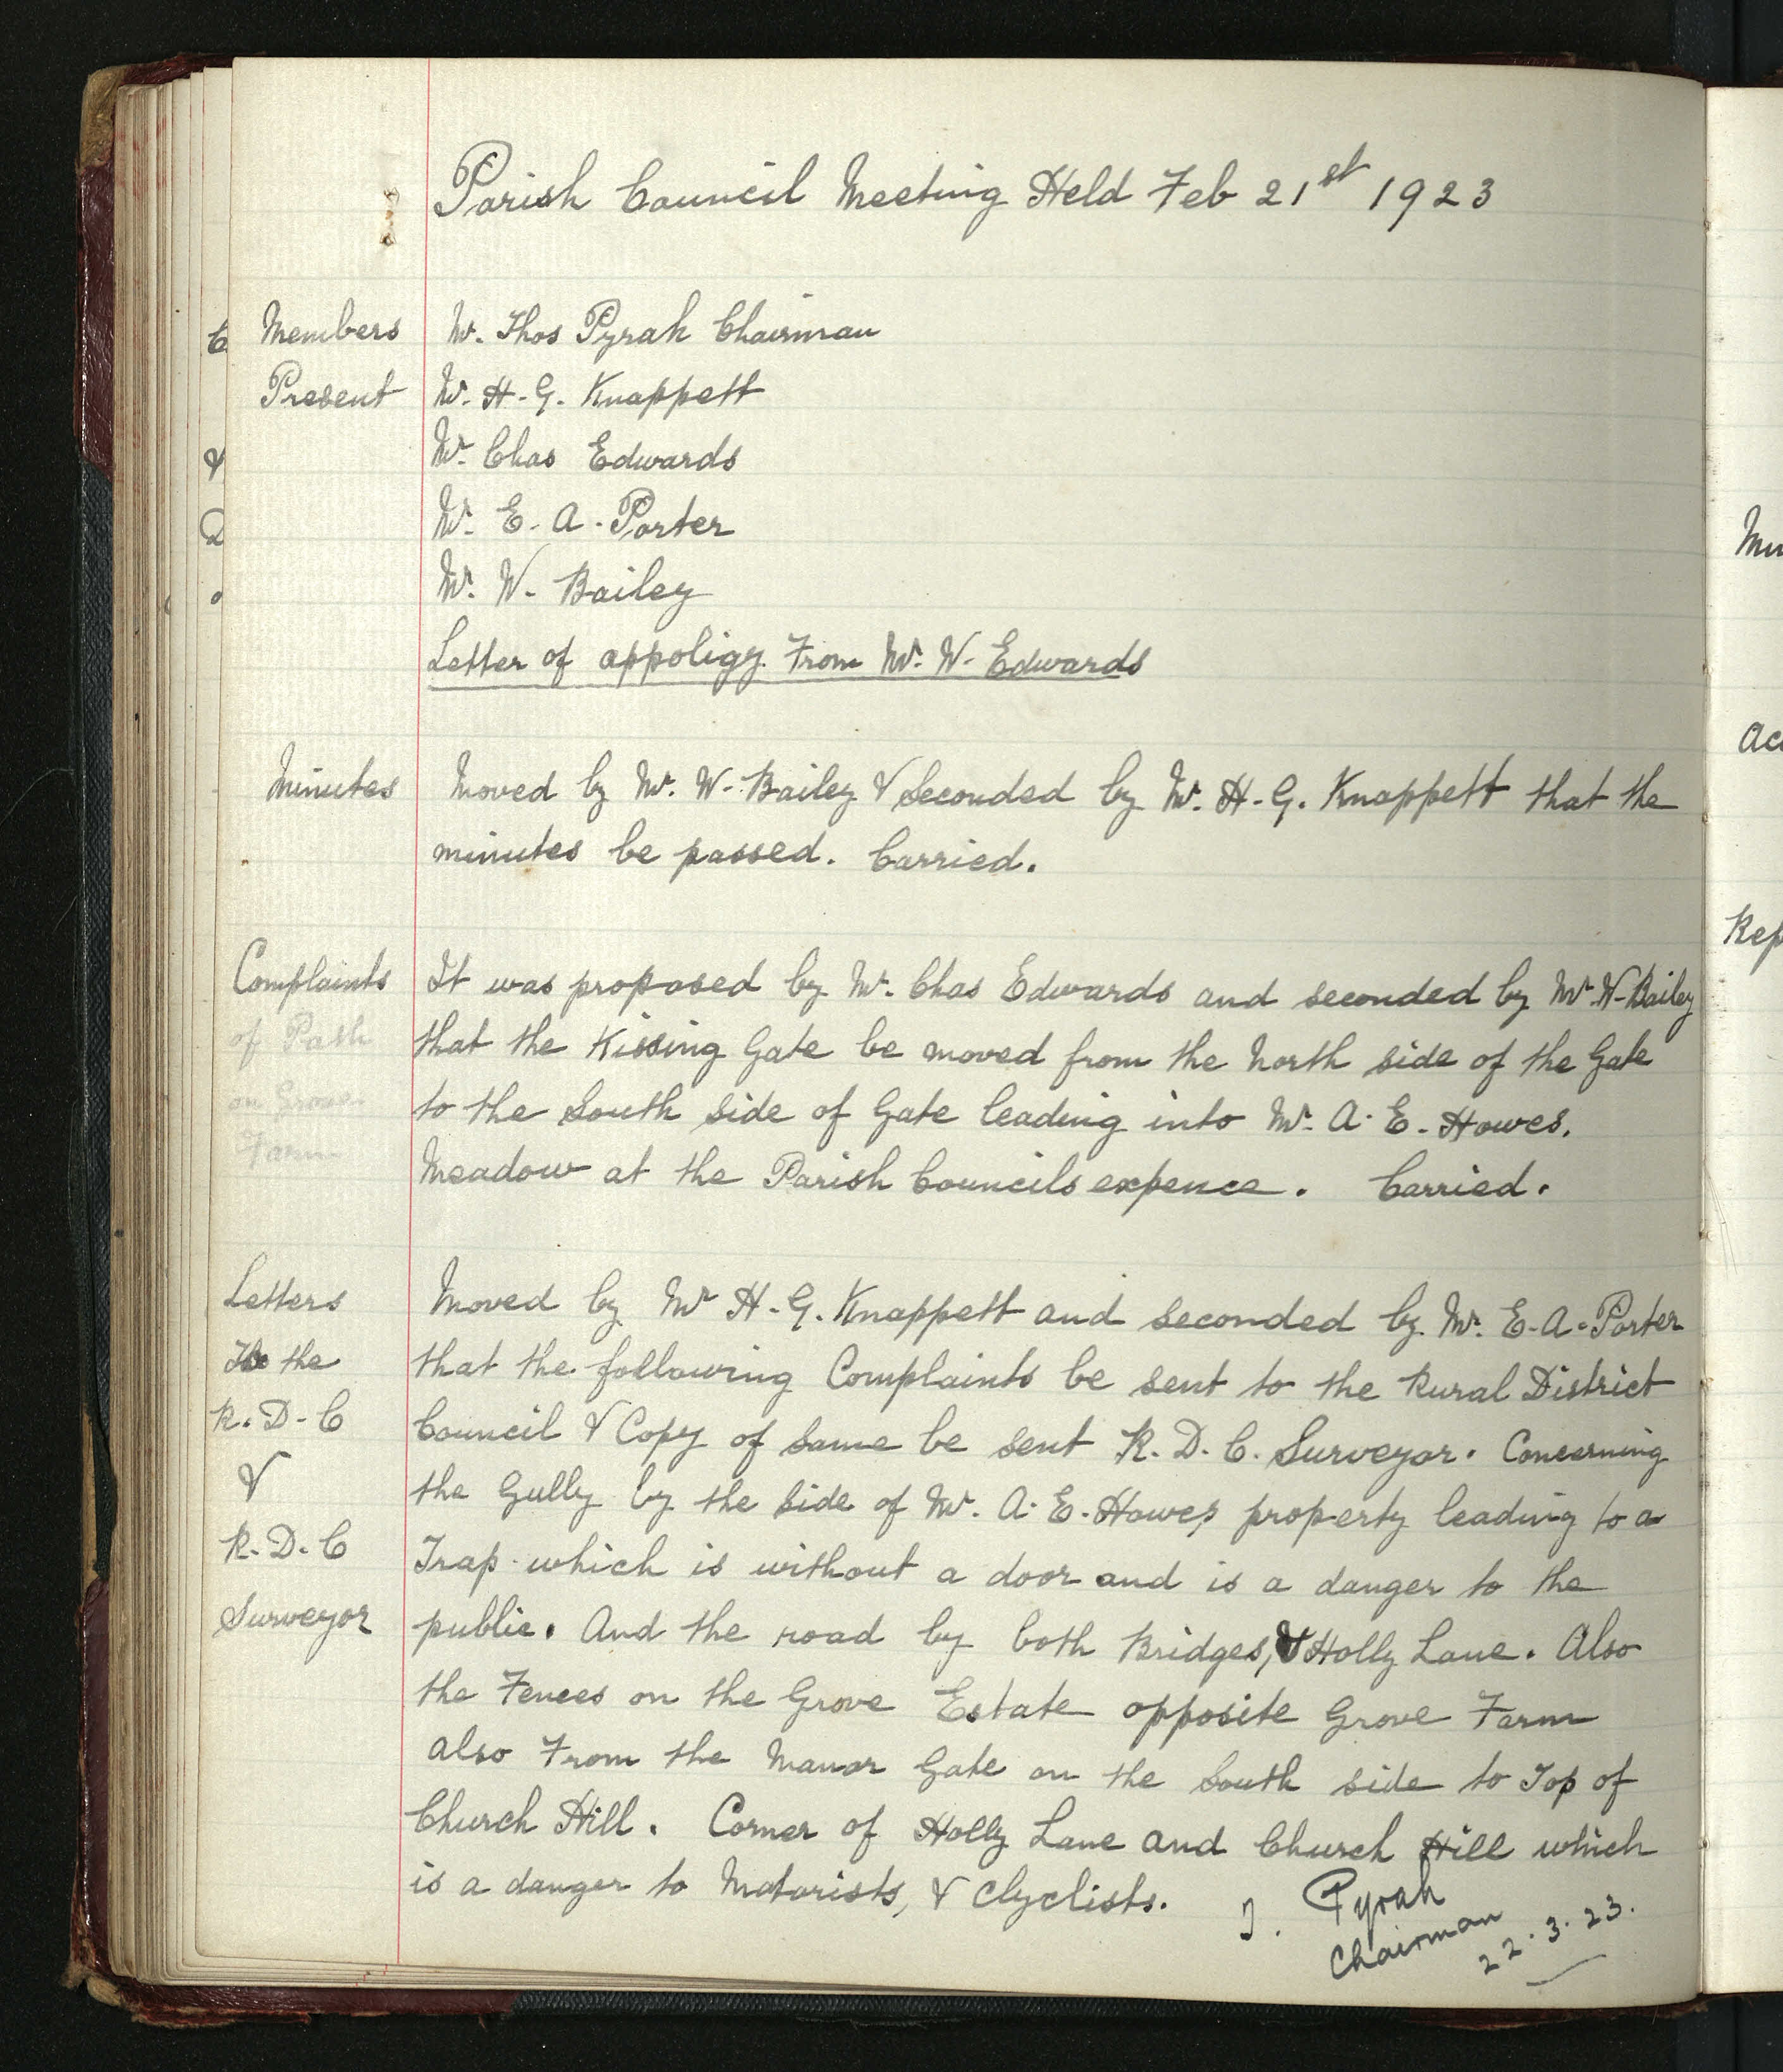 Parish Council Meeting Held Feb 21st 1923
Members Mr. Thos Pyrah Chairman
Present Mr. H. G. Knappett
Mr. Chas Edwards
Mr. E. A. Porter
Mr. W. Bailey
Letter of appoligy From Mr. W. Edwards
Minutes Moved by Mr. W. Bailey & Seconded by Mr. H. G. Knappett that the
minutes be passed. Carried.
Complaints It was proposed by Mr. Chas Edwards and seconded by Mr. W. Bailey
of Path that the Kissing Gate be moved from the North side of the Gate
on Grove to the South side of Gate leading into Mr. A. E. Howes.
Farm Meadow at the Parish Councils expence. Carried.
Letters Moved by Mr H. G. Knappett and seconded by Mr. E. A. Porter
To the that the following Complaints be sent to the Rural District
R. D. C Council & Copy of same be sent R. D. C. Surveyor. Concerning
& the Gully by the side of Mr. A. E. Howes property leading to a
R. D. C Trap which is without a door and is a danger to the
Surveyor public. And the road by both Bridges, & Holly Lane. Also
the Fences on the Grove Estate opposite Grove Farm
also From the Manor Gate on the South side to Top of
Church Hill. Corner of Holly Lane and Church Hill which
is a danger to Motorists, & Clyclists.
T. Pyrah
Chairman
22.3.23.